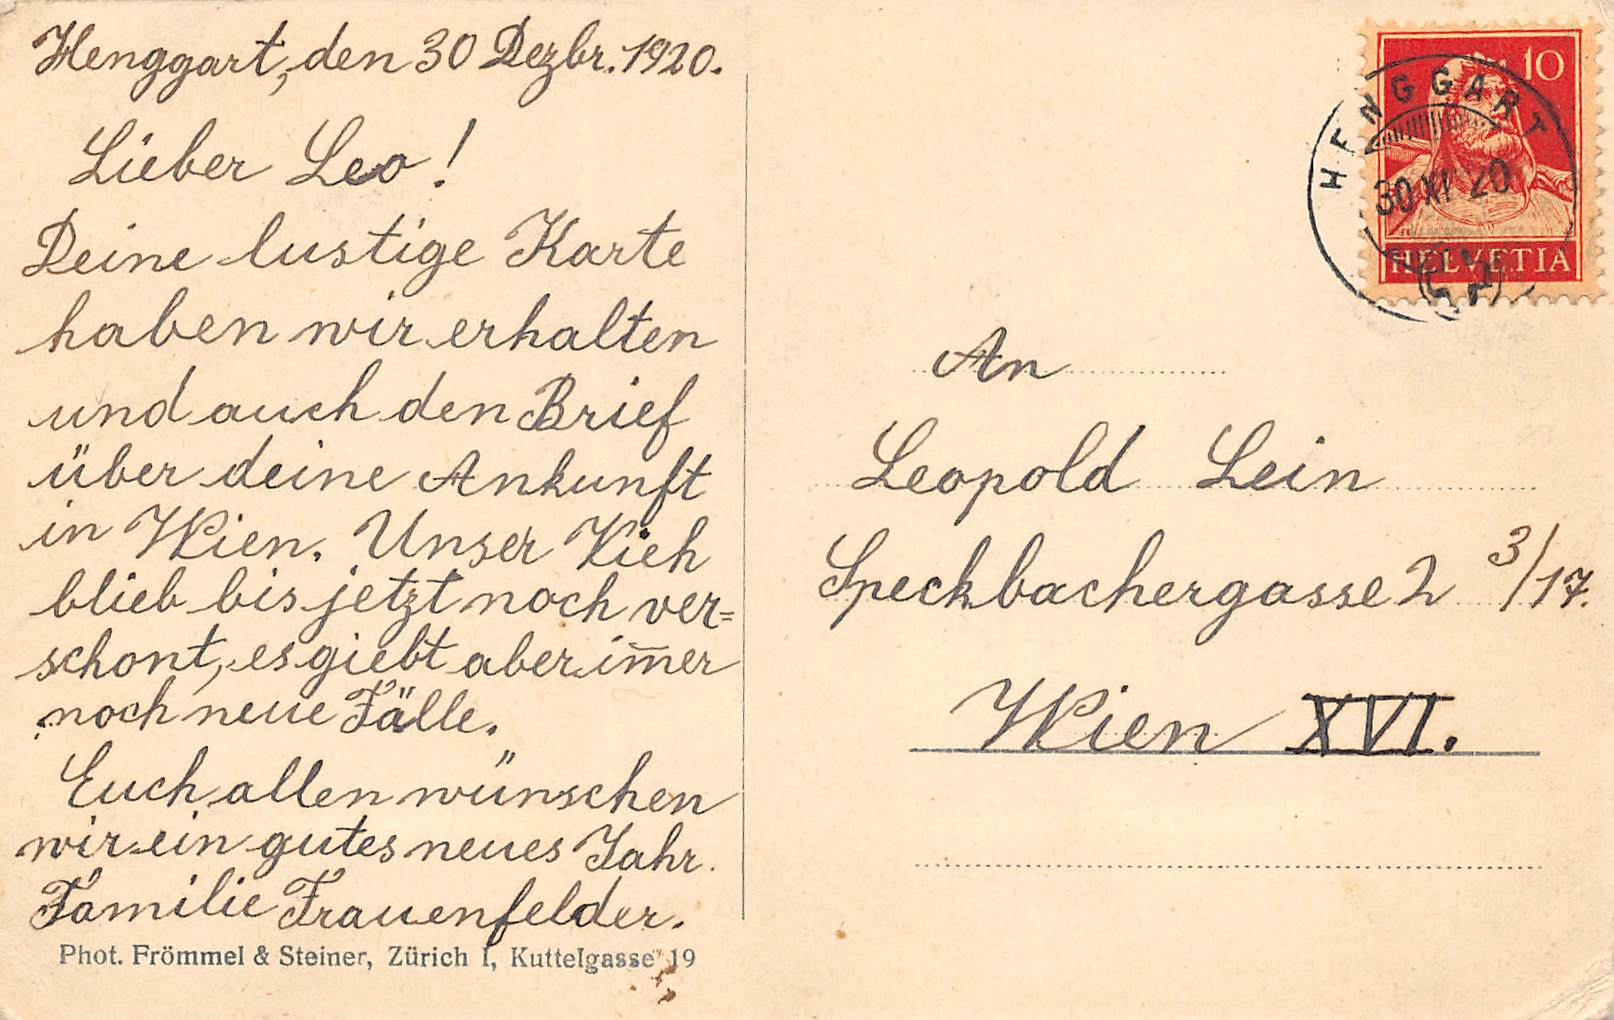 Henggart, den 30 Dezbr. 1920.
Lieber Leo!
Deine lustige Karte
haben wir erhalten
und auch den Brief
über deine Ankunft
in Wien. Unser Vieh
blieb bis jetzt noch ver=
schont, es giebt aber im̅er
noch neue Fälle.
Euch allen wünschen
wir ein gutes neues Jahr.
Familie Frauenfelder.
Phot. Frömmel & Steiner, Zürich I, Kuttelgasse 19
10
HELVETIA
HENGGART
30 XII 20
An
Leopold Lein
Speckbachergasse 2 3/17.
Wien XVI.